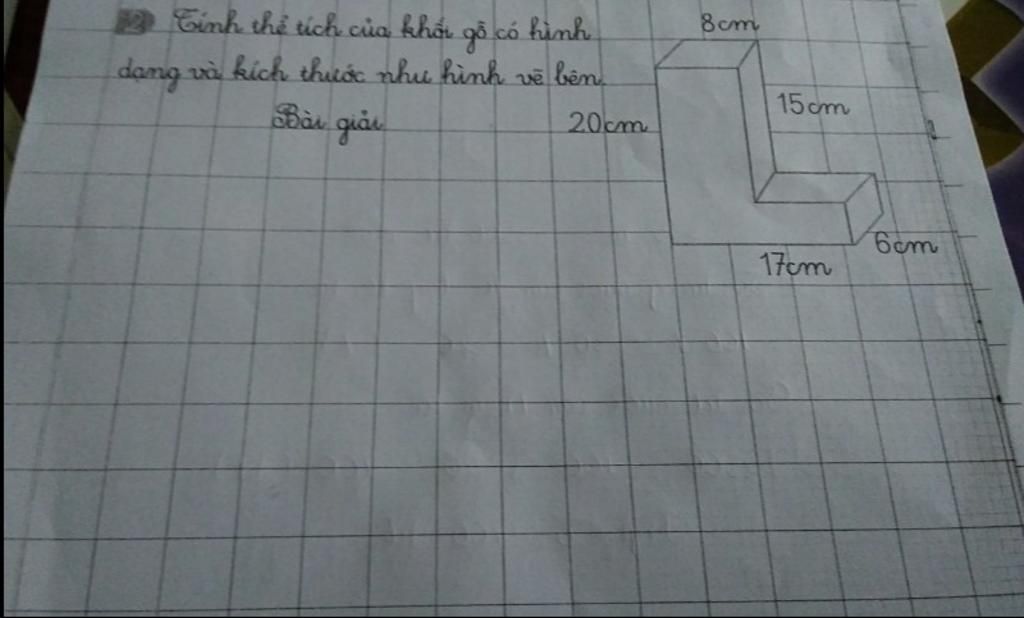 Tính thể tích của khối gỗ có hình
dạng và kích thước như hình vẽ bên.
Bài giải
8cm
15cm
20cm
6cm
17cm